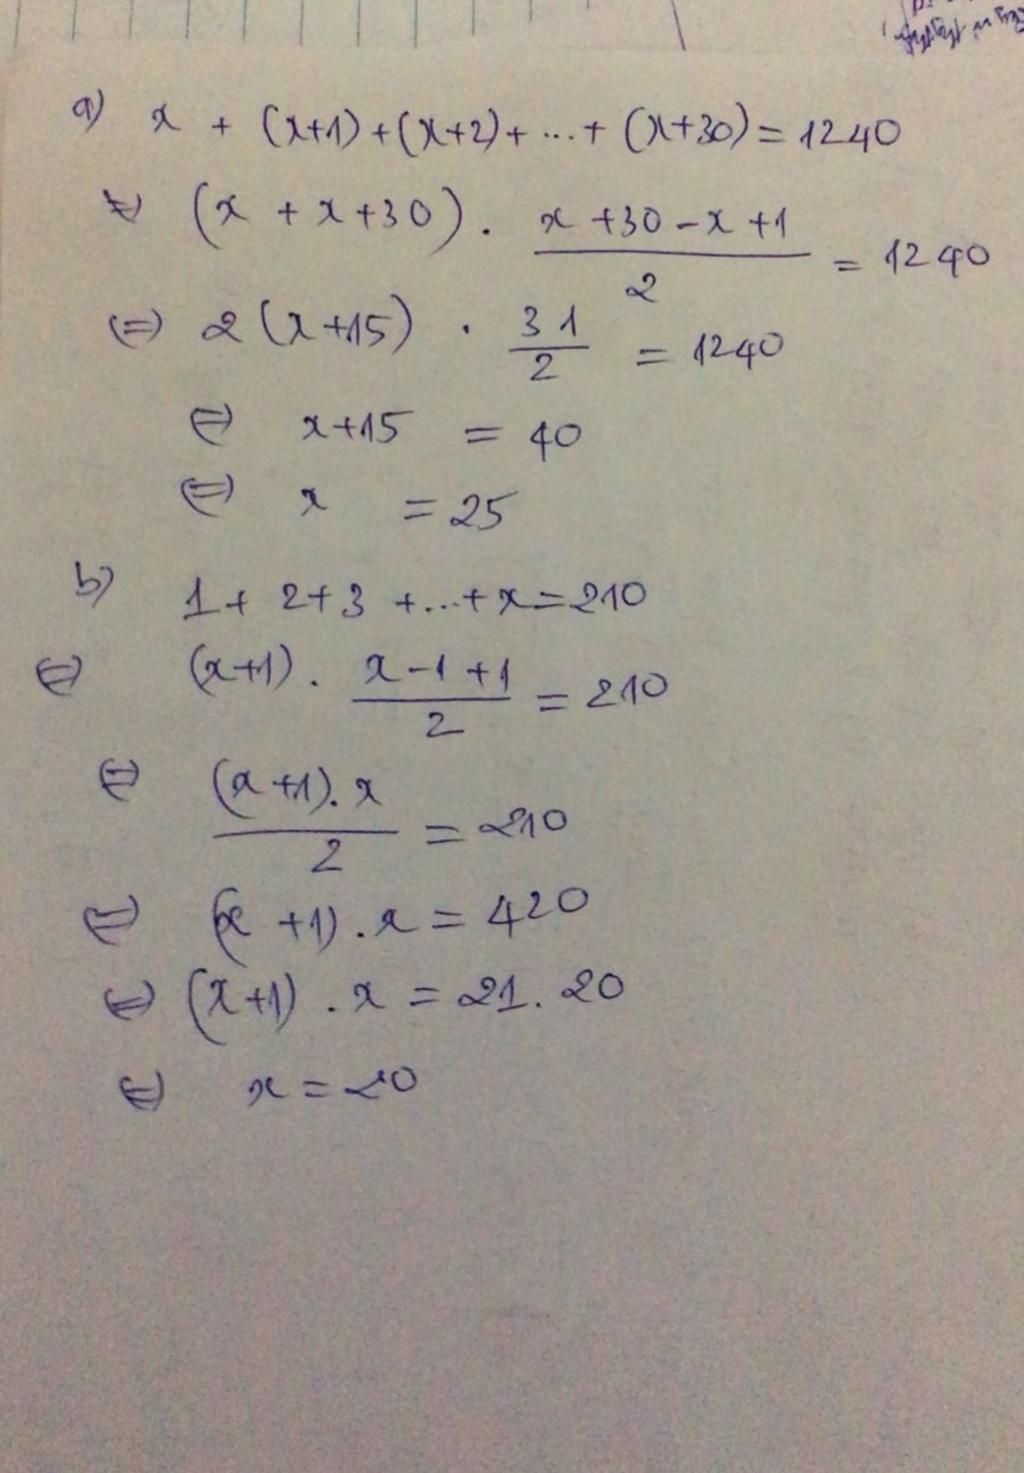 a) x + (x+1) + (x+2) + ... + (x+30) = 1240
⇔ (x + x + 30) . \frac{x + 30 - x + 1}{2} = 1240
⇔ 2(x+15) . \frac{31}{2} = 1240
⇔ x+15 = 40
⇔ x = 25
b) 1 + 2 + 3 + ... + x = 210
⇔ (x+1) . \frac{x - 1 + 1}{2} = 210
⇔ \frac{(x+1). x}{2} = 210
⇔ (x + 1) . x = 420
⇔ (x+1) . x = 21 . 20
⇔ x = 20